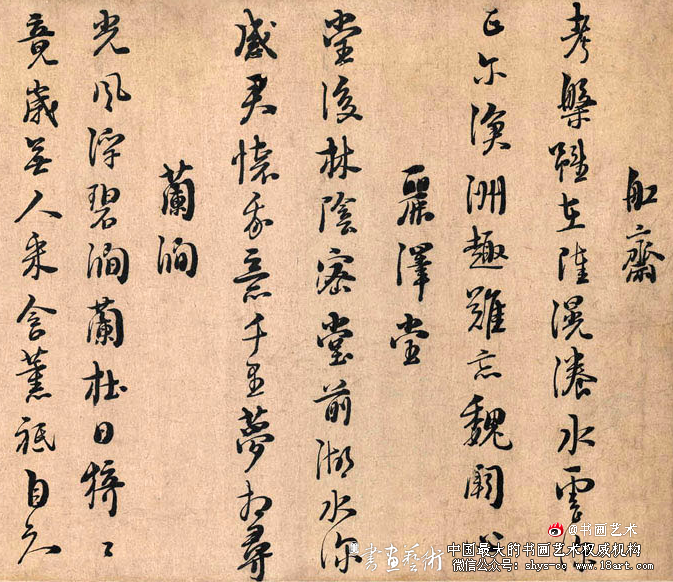 舡齋
考槃雖在陸滉瀁水雲深
正尔滄洲趣難忘魏闕心
麗澤堂
堂後林陰密堂前湖水深
感君懷我意千里夢相尋
蘭澗
光風浮碧澗蘭杜日猗〻
竟歲無人采含薰祗自知
@书画艺术
書畫藝術
中国最大的书画艺术权威机构
微信公众号: shys-cc www.18art.com